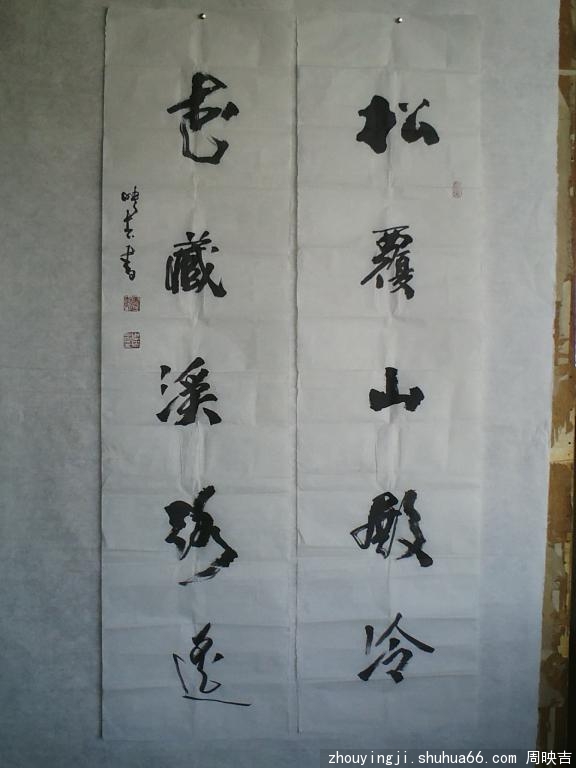 松覆山殿冷
花藏溪路遥
映吉书
zhouyingji.shuhua66.com 周映吉